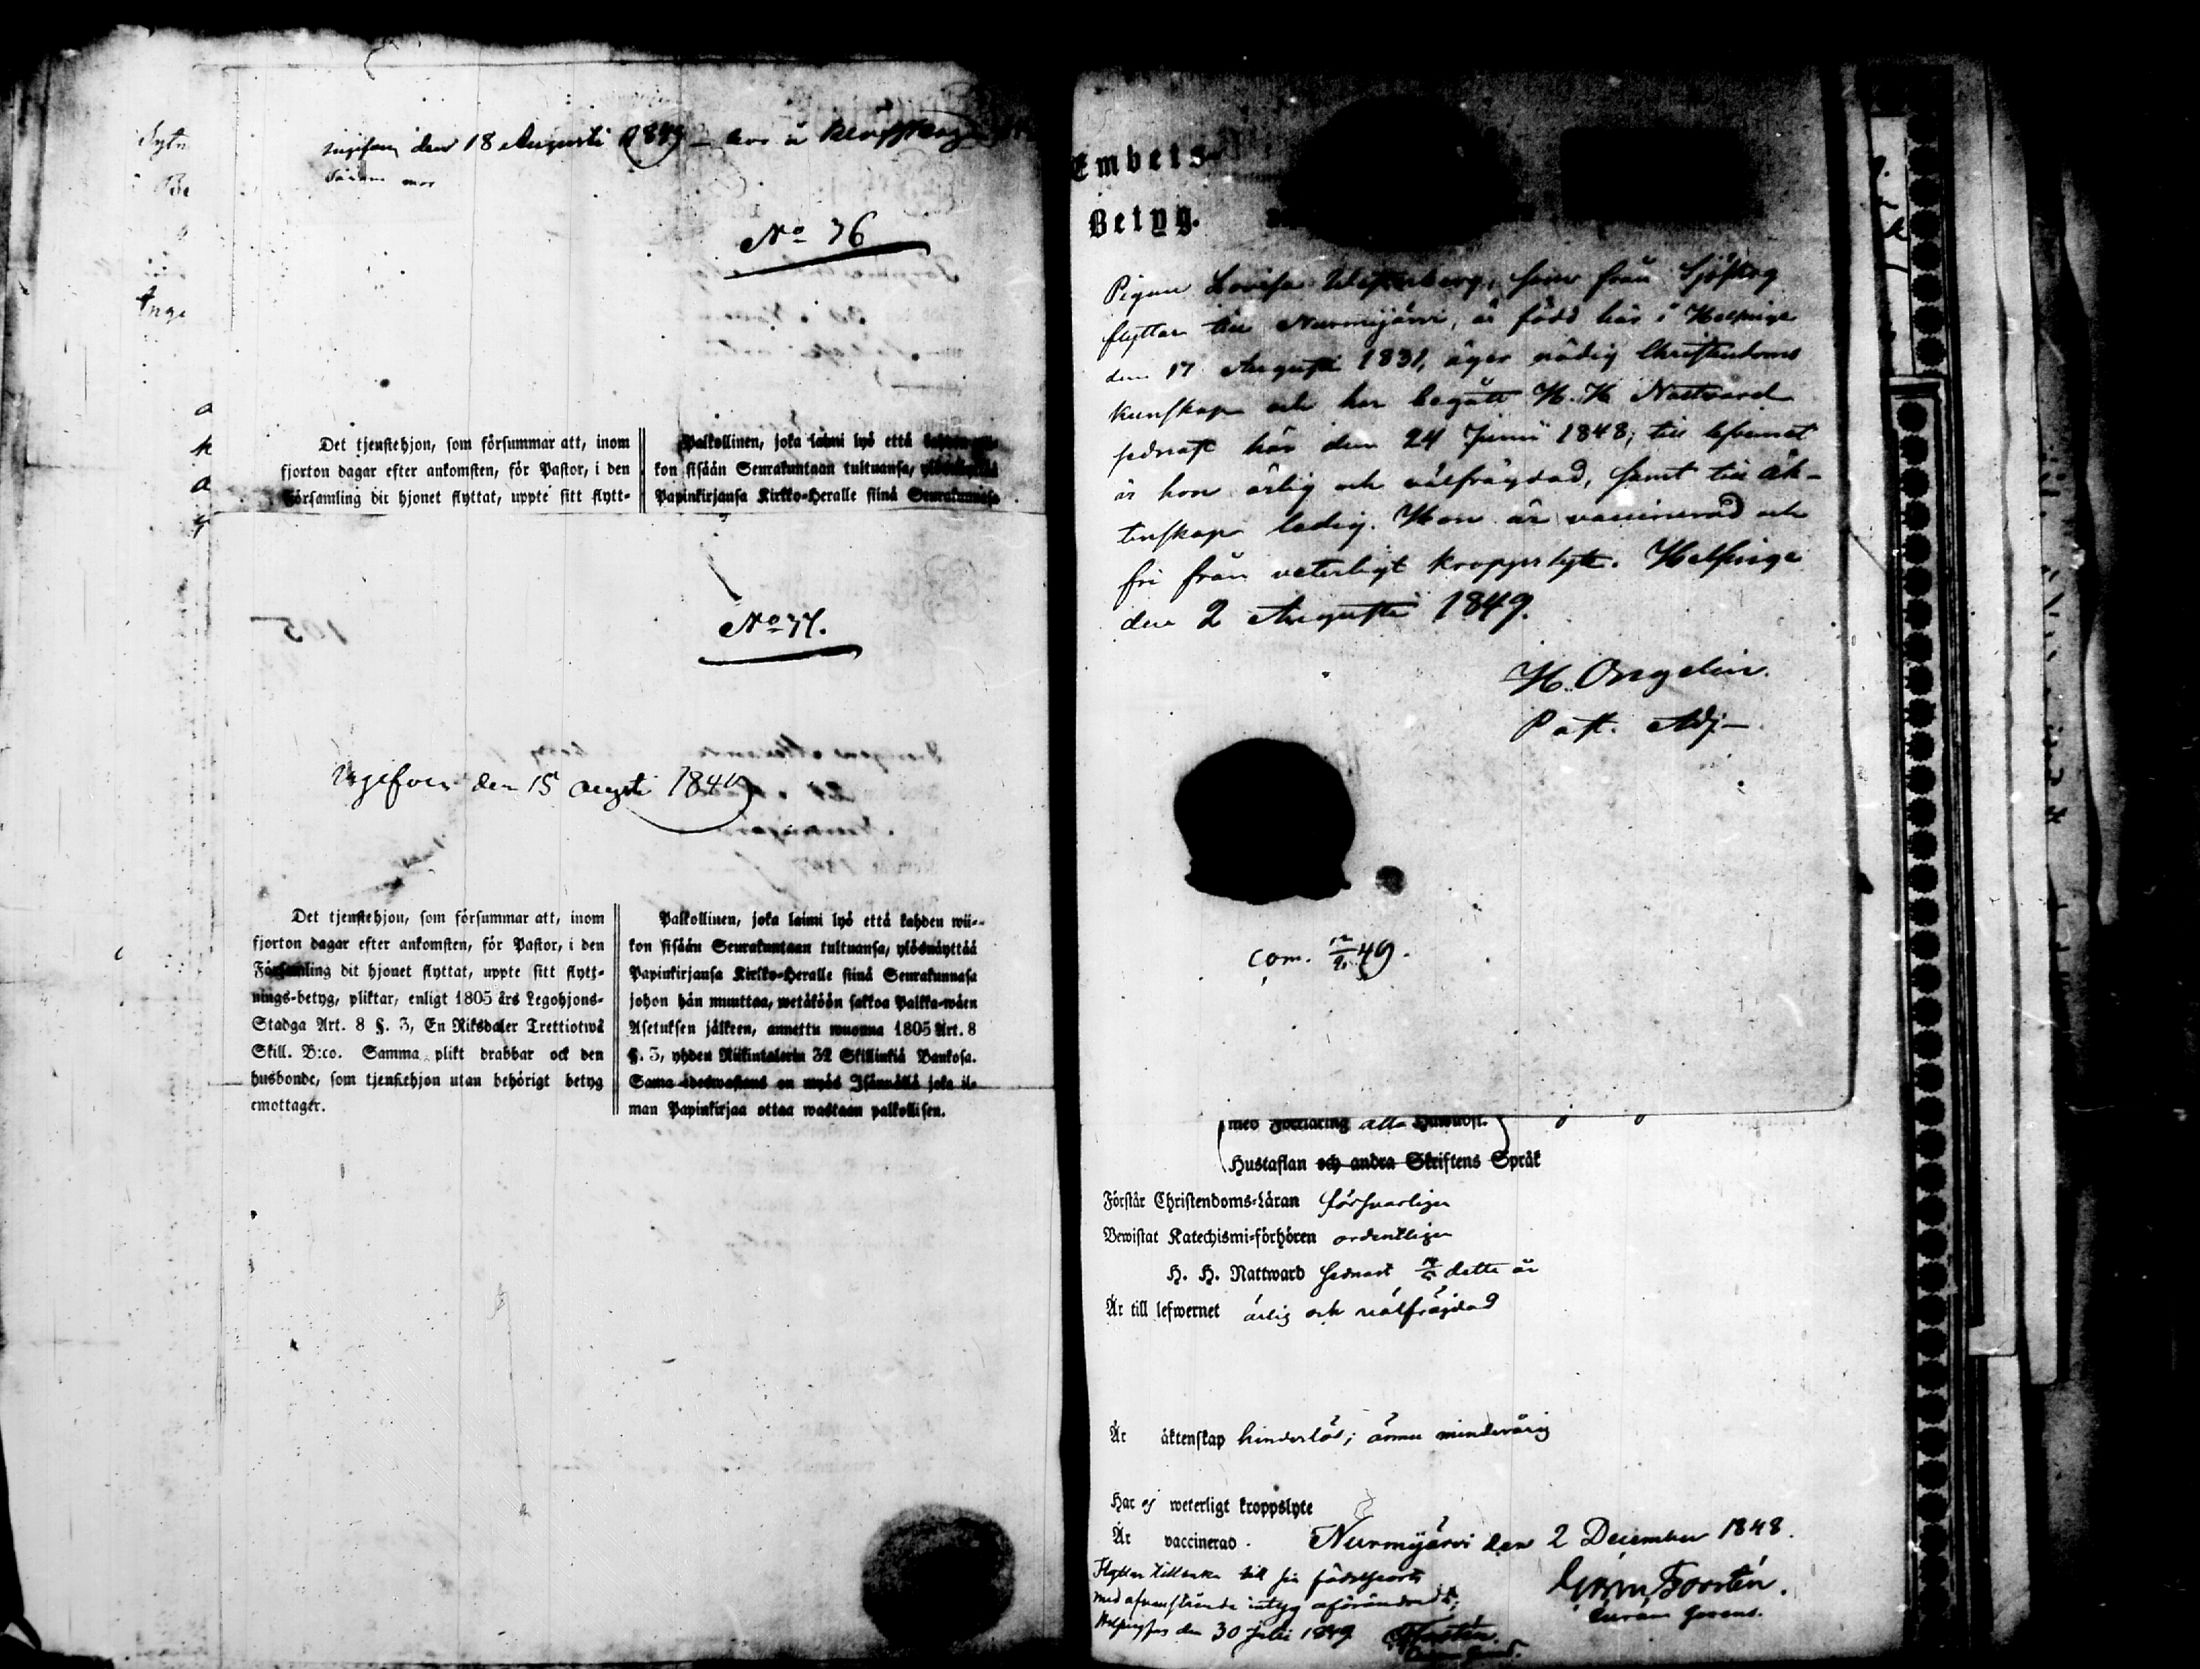 Ingifven den 18 Augusti 1849
No 76
Det tjenstehjon, som försummar att, inom
fjorton dagar efter ankomsten, för Pastor, i den
Församling dit hjonet flyttat, uppte sitt flytt-
Palkollinen, joka laimi lyö että
kon sisään Seurakuntaan tultuansa,
Papinkirjansa Kirkko-Heralle siinä Seurakunnasa
No 77.
Ingifven den 15 augsti 1849
Det tjenstehjon, som försummar att, inom
fjorton dagar efter ankomsten, för Pastor, i den
Församling dit hjonet flyttat, uppte sitt flytt-
nings-betyg, pliktar, enligt 1805 års Legohjons-
Stadga Art. 8 §. 3, En Riksdaler Trettiotwå
Skill. B:co. Samma plikt drabbar ock den
husbonde, som tjenstehjon utan behörigt betyg
emottager.
Palkollinen, joka laimi lyö että kahden wii-
kon sisään Seurakuntaan tultuansa, ylösnäyttää
Papinkirjansa Kirkko-Heralle siinä Seurakunnasa
johon hän muuttaa, wetäköön sakkoa Palkka-wäen
Asetuksen jälkeen, annettu wuonna 1805 Art. 8
§. 3, yhden Riikintalerin 32 Skillinkiä Bankosa.
Sama edeswastaus on myös Isännällä joka il-
man Papinkirjaa ottaa wastaan palkollisen.
Embets-
Betyg.
Pigan Lovisa som från Sjöskog
flyttar till Nurmijärvi, är född här i Helsinge
den 17 Augusti 1831, äger nödig Christendoms
kunskap och har begått H. H. Nattvard
sednast här den 24 Junii 1848; till lefvernet
är hon ärlig och välfrägdad, samt till äk-
tenskap ledig. Hon är vaccinerad och
fri från veterligt kroppslyte. Helsinge
den 2 Augusti 1849.
Past. Adj.
com. 49.
med Förklaring alla Hufwudst.
Hustaflan och andra Skriftens Språk
Förstår Christendoms-Läran försvarligen
Bewistat Katechismi-förhören ordentligen
H. H. Nattward sednast detta år
Är till lefwernet ärlig och välfrägdad
Är äktenskap hinderlös; ännu minderårig
Har ej weterligt kroppslyte
Är vaccinerad. Nurmijärvi den 2 December 1848.
Flyttar tillbaka till sin födelseort
med ofvanstående intyg oförändradt;
Helsingfors den 30 Juli 1849